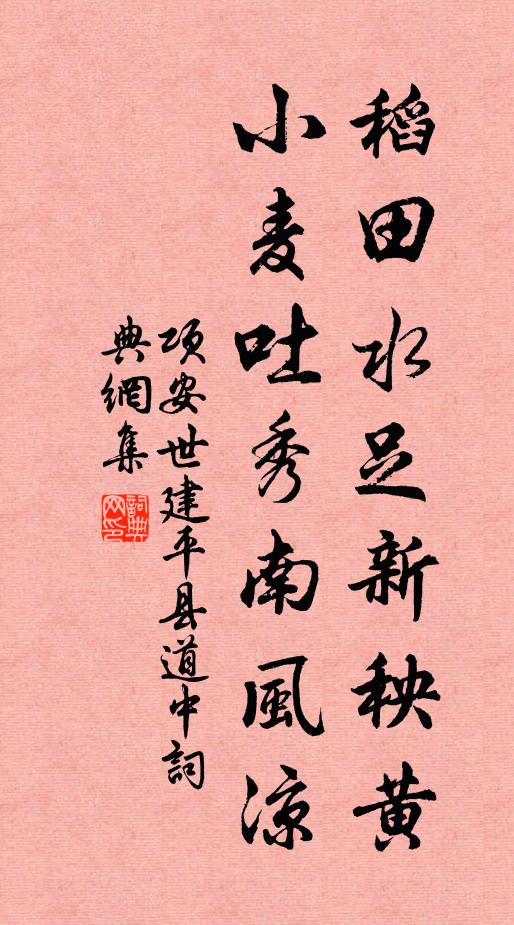 稻田水足新秧黄
小麦吐秀南風凉
项安世建平县道中詞
典網集
詞典
网印